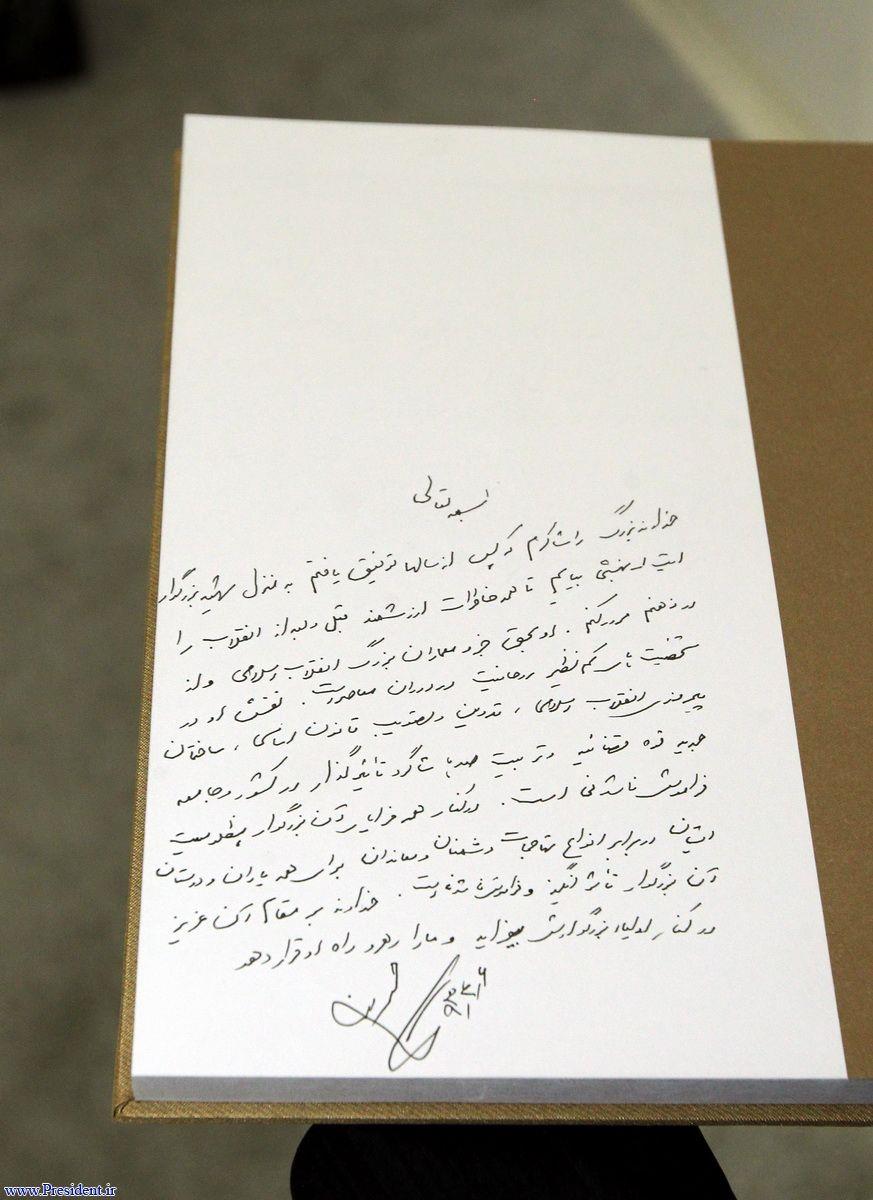 بسمه تعالی
خداوند بزرگ را شاکرم که پس از سالها توفیق یافتم به منزل شهید بزرگوار
آیت ا... بهشتی بیایم تا همه خاطرات ارزشمند قبل و بعد از انقلاب را
در ذهنم مرور کنم. او بحق جزو معماران بزرگ انقلاب اسلامی و از
شخصیت های کم نظیر روحانیت در دوران معاصر است. نقش او در
پیروزی انقلاب اسلامی، تدوین و تصویب قانون اساسی، ساختمان
جدید قوه قضائیه و تربیت صدها شاگرد تاثیرگذار در کشور و جامعه
فراموش ناشدنی است. در کنار همه مزایای آن بزرگوار مظلومیت
ایشان در برابر انواع تهاجمات دشمنان و معاندان برای همه یاران و دوستان
آن بزرگوار تأثر انگیز و فراموش ناشدنی است. خداوند بر مقام آن عزیز
در کنار اولیاء بزرگوارش بیفزاید و ما را رهرو راه او قرار دهد
۹۳/۳/۶
www.President.ir